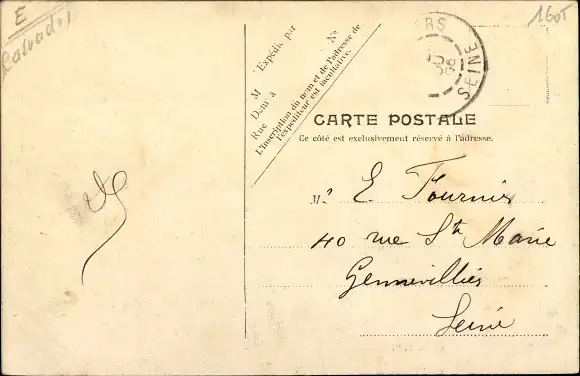 E
Calvados
1605
Expédié par
M
Demt à
Rue
N°
L'inscription du nom et de l'adresse de
l'expéditeur est facultative.
ERS
SEINE
CARTE POSTALE
Ce côté est exclusivement réservé à l'adresse.
Mr E. Fournier
40 rue Ste Marie
Gennevilliers
Seine